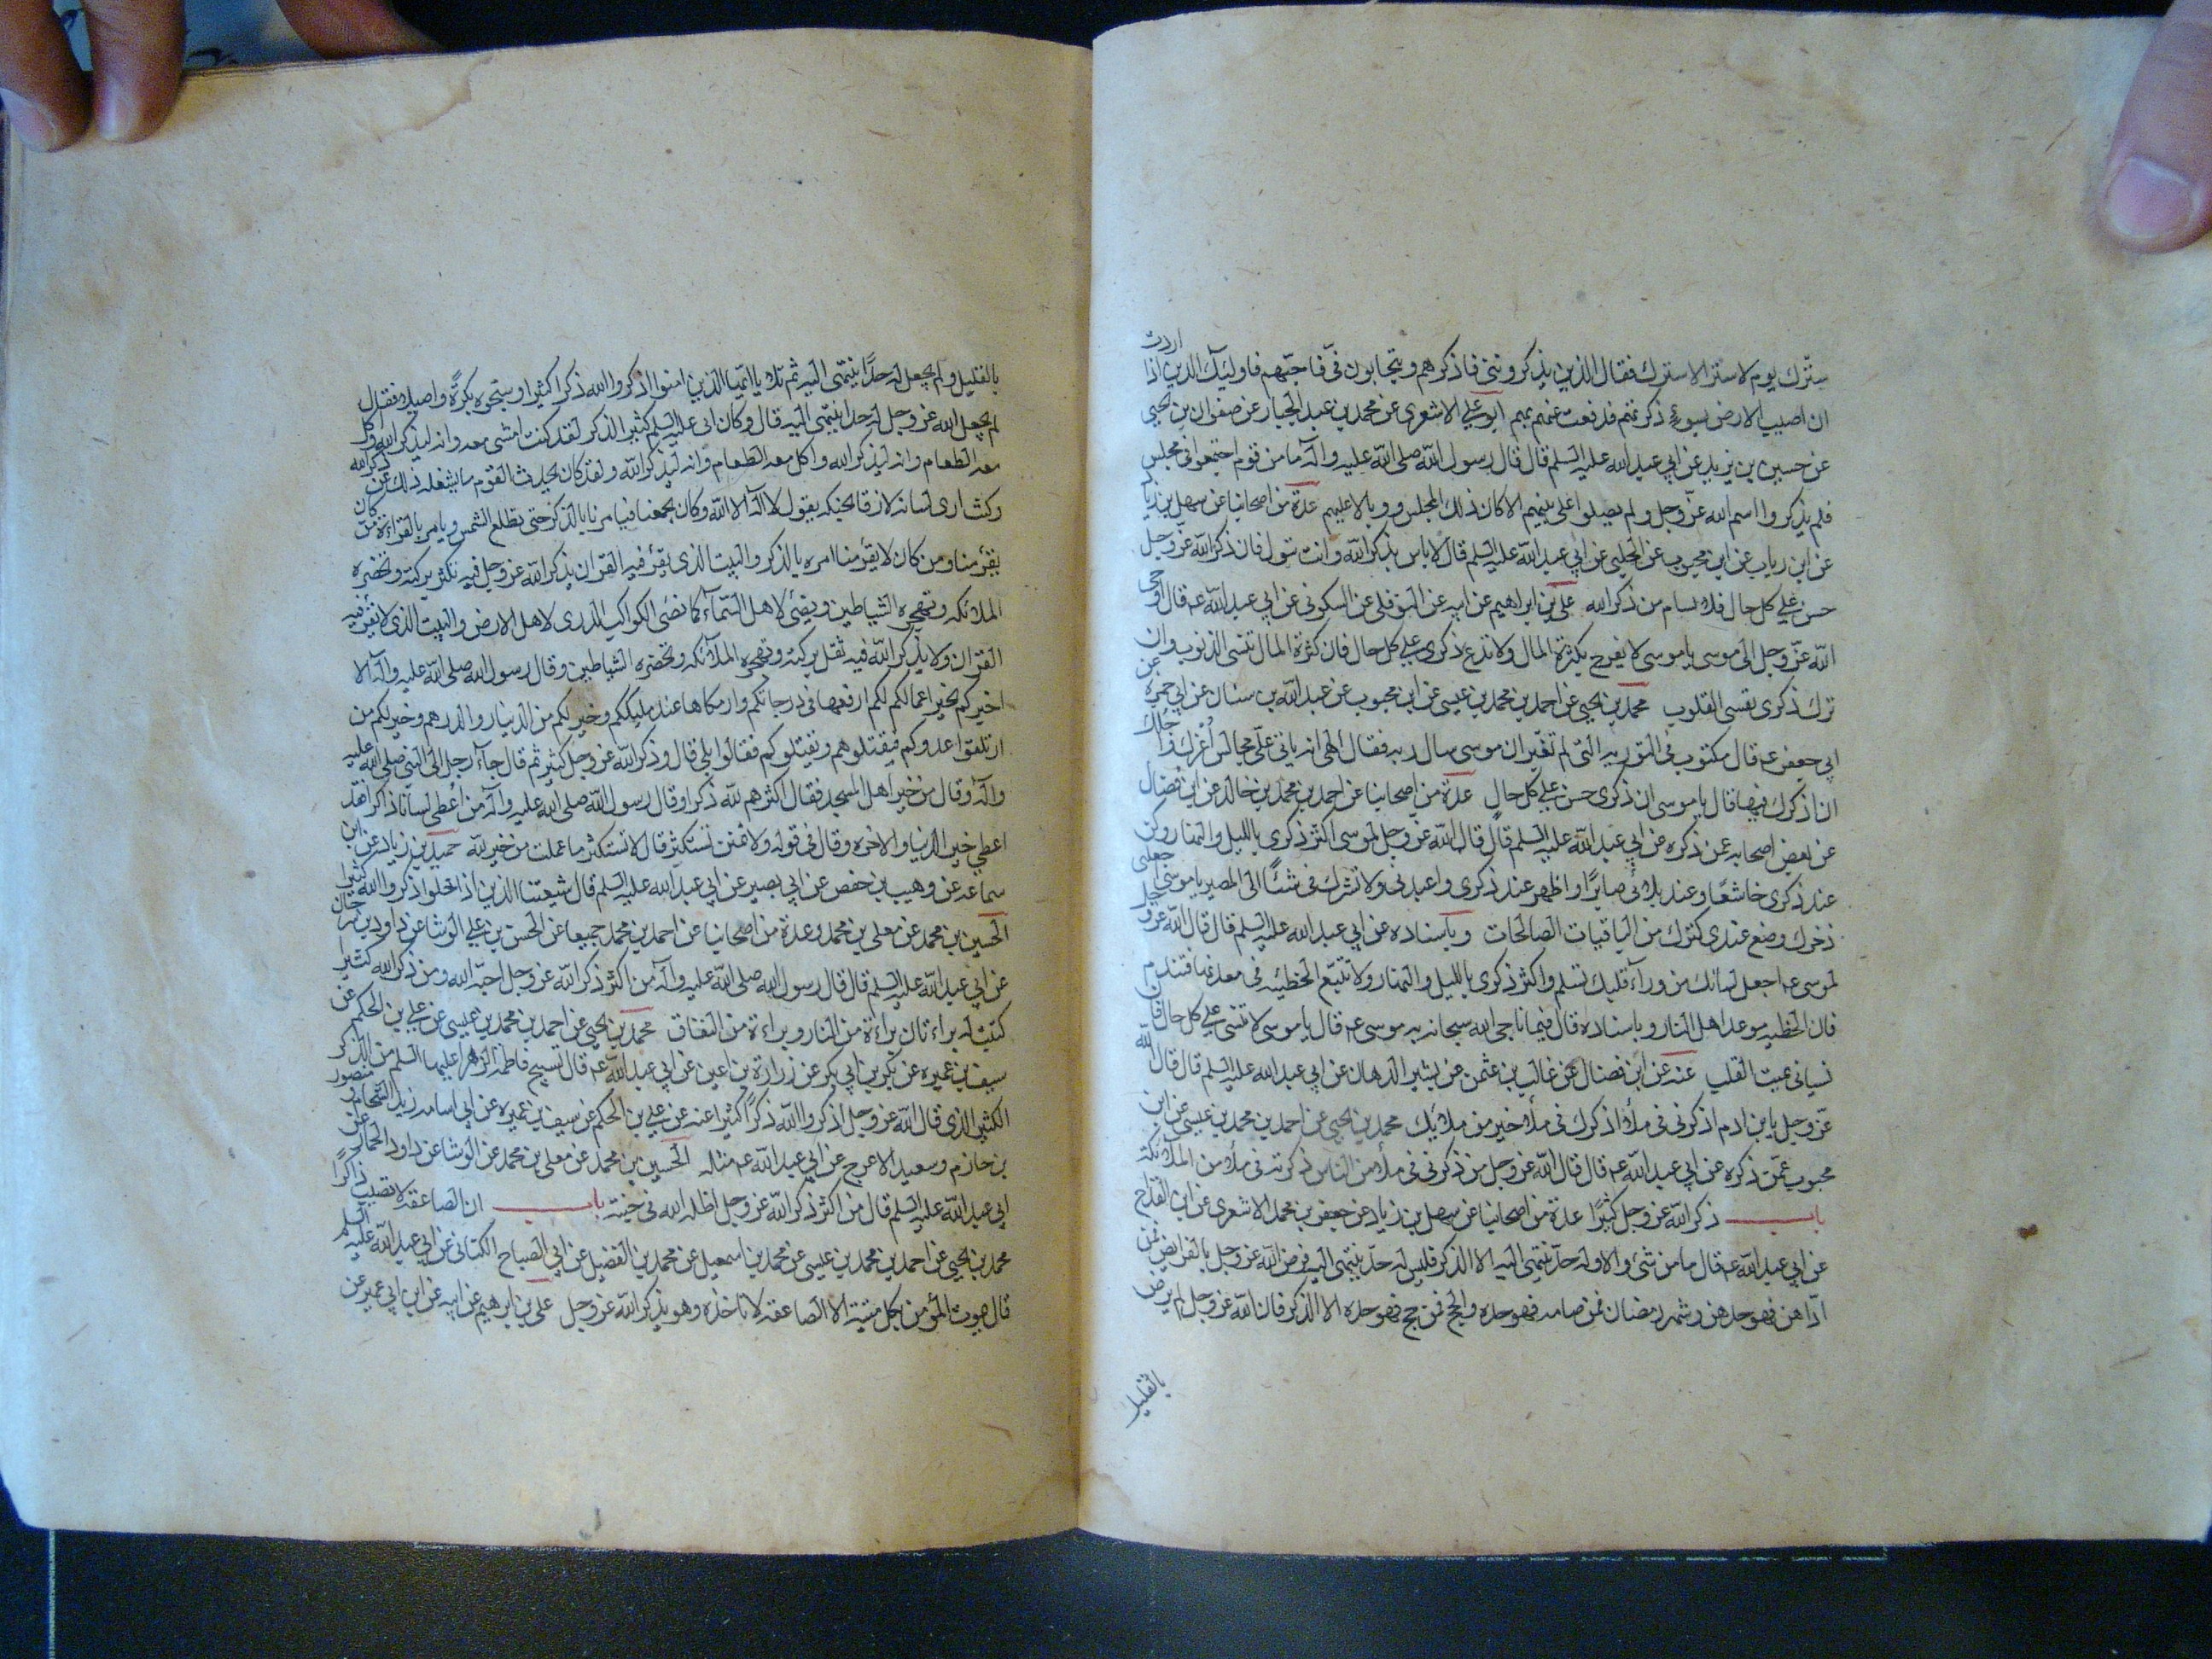 سترك يوم لا ستر الا سترك فقال الذين يذكرونني فاذكرهم ويتحابون فيّ فاحبّهم فاوليك الذين اذا اردت
ان اصيب الارض بسوء ذكرتهم فدفعت عنهم بهم ابو علي الاشعرى عن محمد بن عبد الجبار عن صفوان بن يحيى
عن حسين بن يزيد عن ابي عبد الله عليه السلم قال قال رسول الله صلى الله عليه وآله ما من قوم اجتمعوا في مجلس
فلم يذكروا اسم الله عزّ وجل ولم يصلوا على نبيهم الا كان ذلك المجلس ووبالا عليهم عدة من اصحابنا عن سهل بن زياد
عن ابن رياب عن ابن محبوب عن الحلبي عن ابي عبد الله عليه السلم قال لا باس بذكر الله وانت تبول فان ذكر الله عز وجل
حسن على كل حال فلا تسام من ذكر الله على بن ابراهيم عن ابيه عن النوفلى عن السكونى عن ابي عبد الله عه قال اوحى
الله عزّ وجل الى موسى يا موسى لا تفرح بكثرة المال ولا تدع ذكرى على كل حال فان كثرة المال تنسى الذنوب وان
ترك ذكرى يقسى القلوب محمد بن يحيى عن احمد بن محمد بن عيسى عن ابن محبوب عن عبد الله بن سنان عن ابي حمزه عن
ابي جعفر عه قال مكتوب في التوريه التى لم تغيّر ان موسى سال ربه فقال الهى انه ياتى علّى مجالس أعزك واجلك
ان اذكرك فيها فقال يا موسى ان ذكرى حسن على كل حال عدة من اصحابنا عن احمد بن محمد بن خالد عن ابن فضال
عن بعض اصحابه عمن ذكره عن ابي عبد الله عليه السلم قال قال الله عز وجل لموسى اكثر ذكرى بالليل والنهار وكن
عند ذكرى خاشعًا وعند بلائى صابرًا واطهر عند ذكرى واعبدنى ولا تشرك في شئًا الى المصير يا موسى اجعلنى
ذخرك وضع عندى كنزك من الباقيات الصالحات وباسناده عن ابي عبد الله عليه السلم قال قال الله عز وجل
لموسى عه اجعل لسانك من وراء قلبك تسلم واكثر ذكرى بالليل والنهار ولا تتبع الخطيئه في معدنها فتندم
فان الخطيه موعد اهل النار وباسناده قال فيما ناجى الله سبحانه به موسى عه قال يا موسى لا تنسى على كل حال فان
نسيانى يميت القلب عنه عن ابن فضال عن غالب بن عثمن عن بشير الدهان عن ابي عبد الله عليه السلم قال قال الله
عزّ وجل يا بن ادم اذكرنى في ملأ اذكرك في ملأ خير من ملايك محمد بن يحيى عن احمد بن محمد بن عيسى عن ابن
محبوب عمّن ذكره عن ابي عبد الله عه قال قال الله عز وجل من ذكرنى في ملأ من الناس ذكرته في ملأ من الملائكة
باب ذكر الله عز وجل كثيرًا عدة من اصحابنا عن سهل بن زياد عن جعفر بن محمد الاشعرى عن ابن القداح
عن ابي عبد الله عه قال ما من شئ الا وله حدّ ينتهى اليه الا الذكر فليس له حدّ ينتهى اليه فرض الله عز وجل بالفرايض فمن
ادّاهن فهو حدهن وشهر رمضان فمن صامه فهو حده والحج فمن حج فهو حده الا الذكر فان الله عز وجل لم يرض
بالقليل
بالقليل ولم يجعل له حدًّا ينتهى اليه ثم تلا يا ايّها الذين امنوا اذكروا الله ذكرا كثيرا وسبّحوه بكرةً واصيلا فقال
لم يجعل الله عز وجل له حدا ينتهى اليه قال وكان ابى عليه السلم كثير الذكر لقد كنت امشى معه وانه ليذكر الله وآكل
معه الطعام وانه ليذكر الله واكل معه الطعام وانه ليذكر الله ولقد كان يحدث القوم ما يشغله ذلك عن ذكر الله
وكنت ارى لسانه لازقا بحنكه يقول لا اله الا الله وكان يجمعنا فيامرنا بالذكر حتى تطلع الشمس ويامر بالقراءة من كان
يقرؤ منا ومن كان لا يقرؤ منا امره بالذكر والبيت الذى يقرؤ فيه القران يذكر الله عز وجل فيه تكثر بركته وتحضره
الملائكه وتهجره الشياطين ويضئ لاهل السماء كما تضئ الكواكب الدرى لاهل الارض والبيت الذى لا يقرؤ فيه
القران ولا يذكر الله فيه تقل بركته وتهجره الملائكه وتحضره الشياطين وقال رسول الله صلى الله عليه وآله الا
اخبركم بخير اعمالكم لكم ارفعها في درجاتكم وازكاها عند مليككم وخير لكم من الدينار والدرهم وخير لكم من
ان تلقوا عدوكم فتقتلوهم ويقتلوكم فقالوا بلى قال ذكر الله عز وجل كثير ثم قال جاء رجل الى النبي صلى الله عليه
وآله وقال من خير اهل المسجد فقال اكثرهم لله ذكرا وقال رسول الله صلى الله عليه وآله من اعطى لسانا ذاكرا فقد
اعطى خير الدنيا والاخره وقال في قوله ولا تمنن تستكثر قال لا تستكثر ما عملت من خير لله حميد بن زياد عن ابن
سماعه عن وهيب بن حفص عن ابي بصير عن ابي عبد الله عليه السلم قال شيعتنا الذين اذا خلوا ذكروا الله كثيرا
الحسين بن محمد عن معلى بن محمد وعدة من اصحابنا عن احمد بن محمد جميعا عن الحسن بن على الوشا عن داود بن سرحان
عن ابي عبد الله عليه السلم قال قال رسول الله صلى الله عليه وآله من اكثر ذكر الله عز وجل احبّه الله ومن ذكر الله كثيرا
كتبت له براءتان براءة من النار وبراءة من النفاق محمد بن يحيى عن احمد بن محمد بن عيسى عن على بن الحكم عن
سيف بن عميره عن بكر بن ابي بكر عن زرارة بن اعين عن ابي عبد الله عه قال تسبيح فاطمه الزهرا عليها السلم من الذكر
الكثير الذى قال الله عز وجل اذكروا الله ذكرًا كثيرا عنه عن على بن الحكم عن سيف بن عميره عن ابي اسامه زيد الشحام ومنصور
بن حازم وسعيد الاعرج عن ابي عبد الله عه مثله الحسين بن محمد عن معلى بن محمد عن الوشا عن داود الحمار عن
ابي عبد الله عليه السلم قال من اكثر ذكر الله عز وجل اظله الله في جنته باب ان الصاعقه لا تصيب ذاكرًا
محمد بن يحيى عن احمد بن محمد بن عيسى عن محمد بن اسمعيل عن محمد بن الفضيل عن ابي الصباح الكنانى عن ابي عبد الله عليه السلم
قال يموت المؤمن بكل ميتة الا الصاعقه لا تاخذه وهو يذكر الله عز وجل على بن ابرهيم عن ابيه عن ابن ابي عمير عن